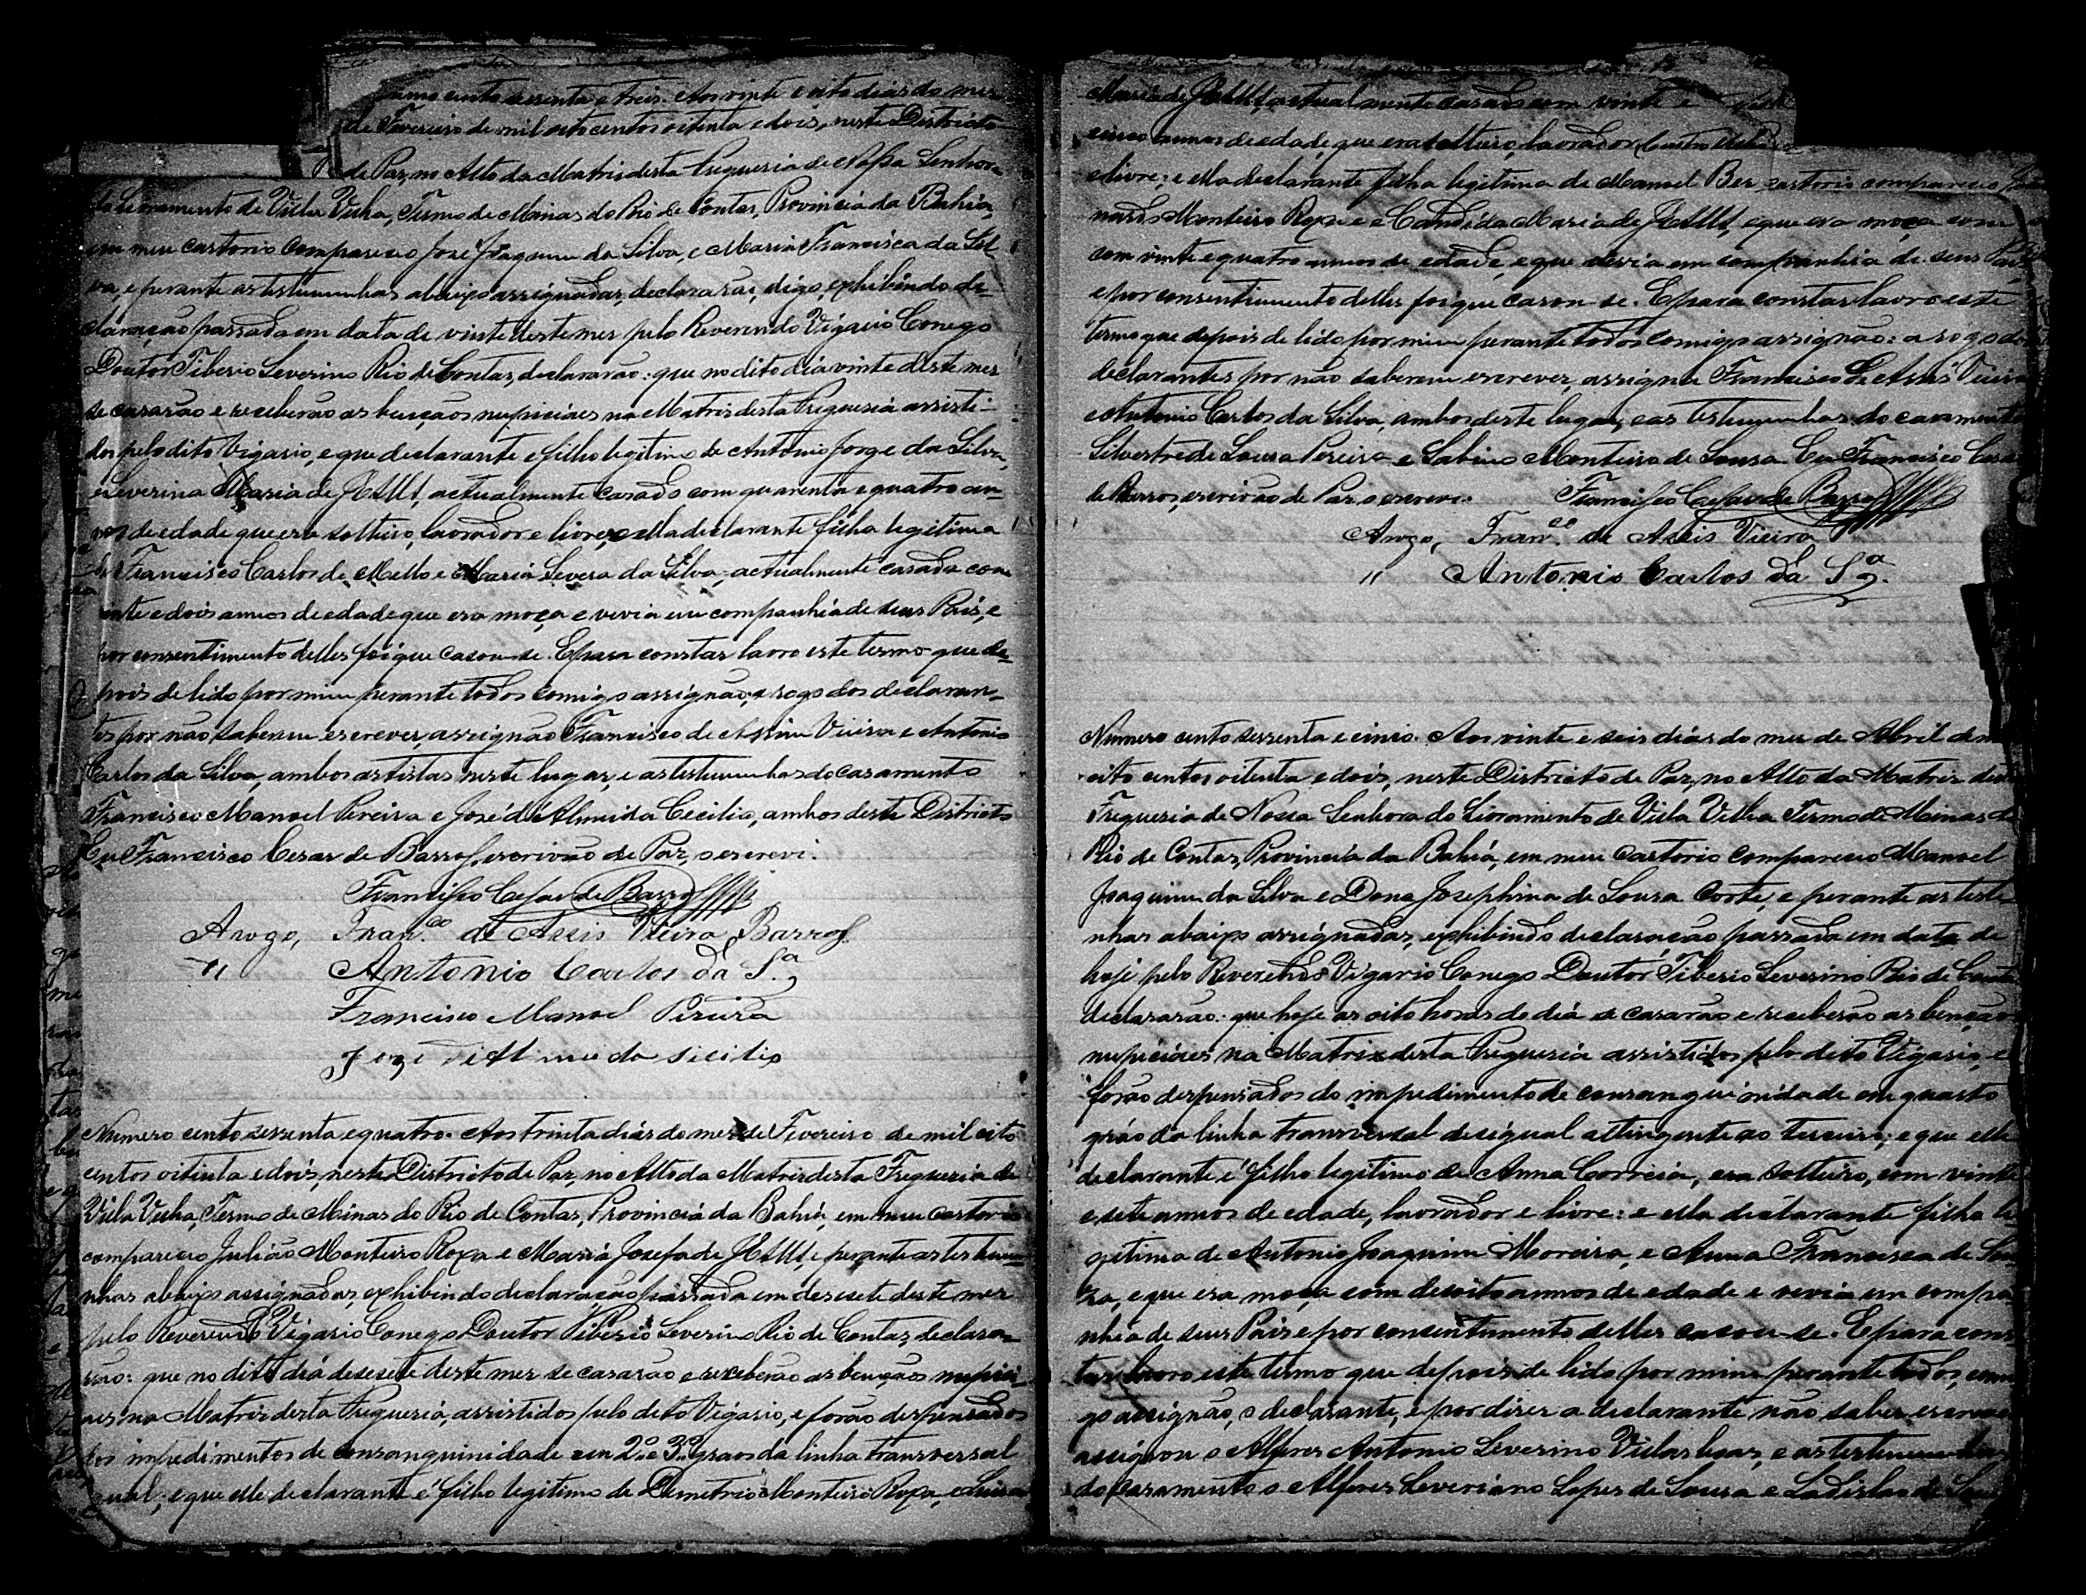 Numero cento sessenta e treis. Aos vinte e oito dias do mes
de Fevereiro de mil oito centos oitenta e dois, neste Districto
de Paz, no Alto da Matris desta Freguesia de Nossa Senhora
do Livramento de Villa Velha, Termo de Minas do Rio de Contas, Provincia da Bahia,
em meu cartorio compareceo José Joaquim da Silva, e Maria Francisca da Sil-
va, e perante as testemunhas abaixo assignadas, declararão, digo, exhibindo de-
claração passada em data de vinte deste mes pelo Reverendo Vigario Conego
Doutor Tiberio Severino Rio de Contas, declararão: que no dito dia vinte deste mes
se casarão e receberão as bençãos nupiciaes na Matris desta Freguesia assisti-
dos pelo dito Vigario, e que declarante e filho legitimo de Antonio Jorge da Silva,
e Severina Maria de Jesus, actualmente casado com quarenta e quatro an-
nos de edade que era solteiro, lavrador e livre, e ella declarante filha legitima
de Francisco Carlos de Mello e Maria Severa da Silva, actualmente casada com
vinte e dois annos de edade que era moça e vevia em companhia de seus Pais, e
por consentimento delles foi que casou-se. E para constar lavro este termo que de-
pois de lido por mim perante todos comigo assignão, a rogo dos declaran-
tes por não saberem escrever, assignão Francisco de Assis Vieira e Antonio
Carlos da Silva, ambos artistas neste lugar, e as testemunhas do casamento
Francisco Manoel Pereira e José d'Almeida Cecilio, ambos deste Districto
Eu Francisco Cesar de Barros, escrivão de Paz, o escrevi.
Francisco Cesar de Barros
Arogo, Fran.co de Assis Vieira Barros
" Antonio Carlos da S.a
Francisco Manoel Pireira
Joze d'Almeida sicilio
Numero cento sessenta e quatro. Aos trinta dias do mes de Fevereiro de mil oito
centos oitenta e dois, neste Districto de Paz, no Alto da Matris desta Freguesia de
Villa Velha, Termo de Minas do Rio de Contas, Provincia da Bahia, em meu cartorio
compareceo Julião Monteiro Roxa e Maria Josefa de Jesus, e perante as testemu-
nhas abaixo assignadas, exhibindo declaração passada em desesete deste mes
pelo Reverendo Vigario Conego Doutor Tiberio Severino Rio de Contas, declara-
rão: que no dito dia desesete deste mes se casarão e receberão as bençãos nupici-
aes na Matris desta Freguesia, assistidos pelo dito Vigario, e forão despensados
dos impedimentos de consanguinidade em 2.º e 3.º graos da linha transversal
igual; e que elle declarante é filho legitimo de Demetrio Monteiro Roxa, e Luisa
Maria de Jesus, actualmente casado com vinte e
cinco annos de edade, que era solteiro, lavrador
e livre; e ella declarante filha legitima de Manoel Ber
nardo Monteiro Roxa e Candida Maria de Jesus, e que era moça com
com vinte e quatro annos de edade, e que vevia em companhia de seus Pais,
e por consentimento delles foi que casou-se. E para constar lavro este
termo que depois de lido por mim perante todos comigo assignão: a rogo dos
declarantes por não saberem escrever, assignão Francisco de Assis Vieira
e Antonio Carlos da Silva, ambos deste lugar, e as testemunhas do casamento
Silvestre de Sousa Pereira e Sabino Monteiro de Sousa. Eu Francisco Cesar
de Barros, escrivão de Paz, o escrevi. Francisco Cesar de Barros
Arogo, Fran.co de Assis Vieira
" Antonio Carlos da S.a
Numero cento sessenta e cinco. Aos vinte e seis dias do mes de Abril de mil
oito centos oitenta e dois, neste Districto de Paz, no Alto da Matris desta
Freguesia de Nossa Senhora do Livramento de Villa Velha Termo de Minas do
Rio de Contas, Provincia da Bahia, em meu cartorio compareceo Manoel
Joaquim da Silva e Dona Josephina de Sousa Corte, e perante as teste-
nhas abaixo assignadas, exhibindo declaração passada em data de
hoje pelo Reverendo Vigario Conego Doutor Tiberio Severino Rio de Contas
declararão: que hoje as oito horas do dia se casarão e receberão as bençãos
nupiciaes na Matris desta Freguesia assistidos pelo dito Vigario, e
forão despensados do impedimento de consanguinidade em quarto
gráo da linha transversal desigual attingente ao terceiro; e que elle
declarante é filho legitimo de Anna Correia, era solteiro, com vinte
e sete annos de edade, lavrador e livre: e ella declarante filha le
gitima de Antonio Joaquim Moreira, e Anna Francisca de Sou
za, e que era moça com desoito annos de edade e vevia em compa
nhia de seus Pais e por consentimento delles casou-se. E para cons
tar lavro este termo que depois de lido por mim perante todos, comi
go assignão, o declarante, e por diser a declarante não saber escrever
assignou o Alferes Antonio Severino Villas boas, e as testemunhas
do casamento o Alferes Severiano Lopes de Sousa e Ladislao de Sousa